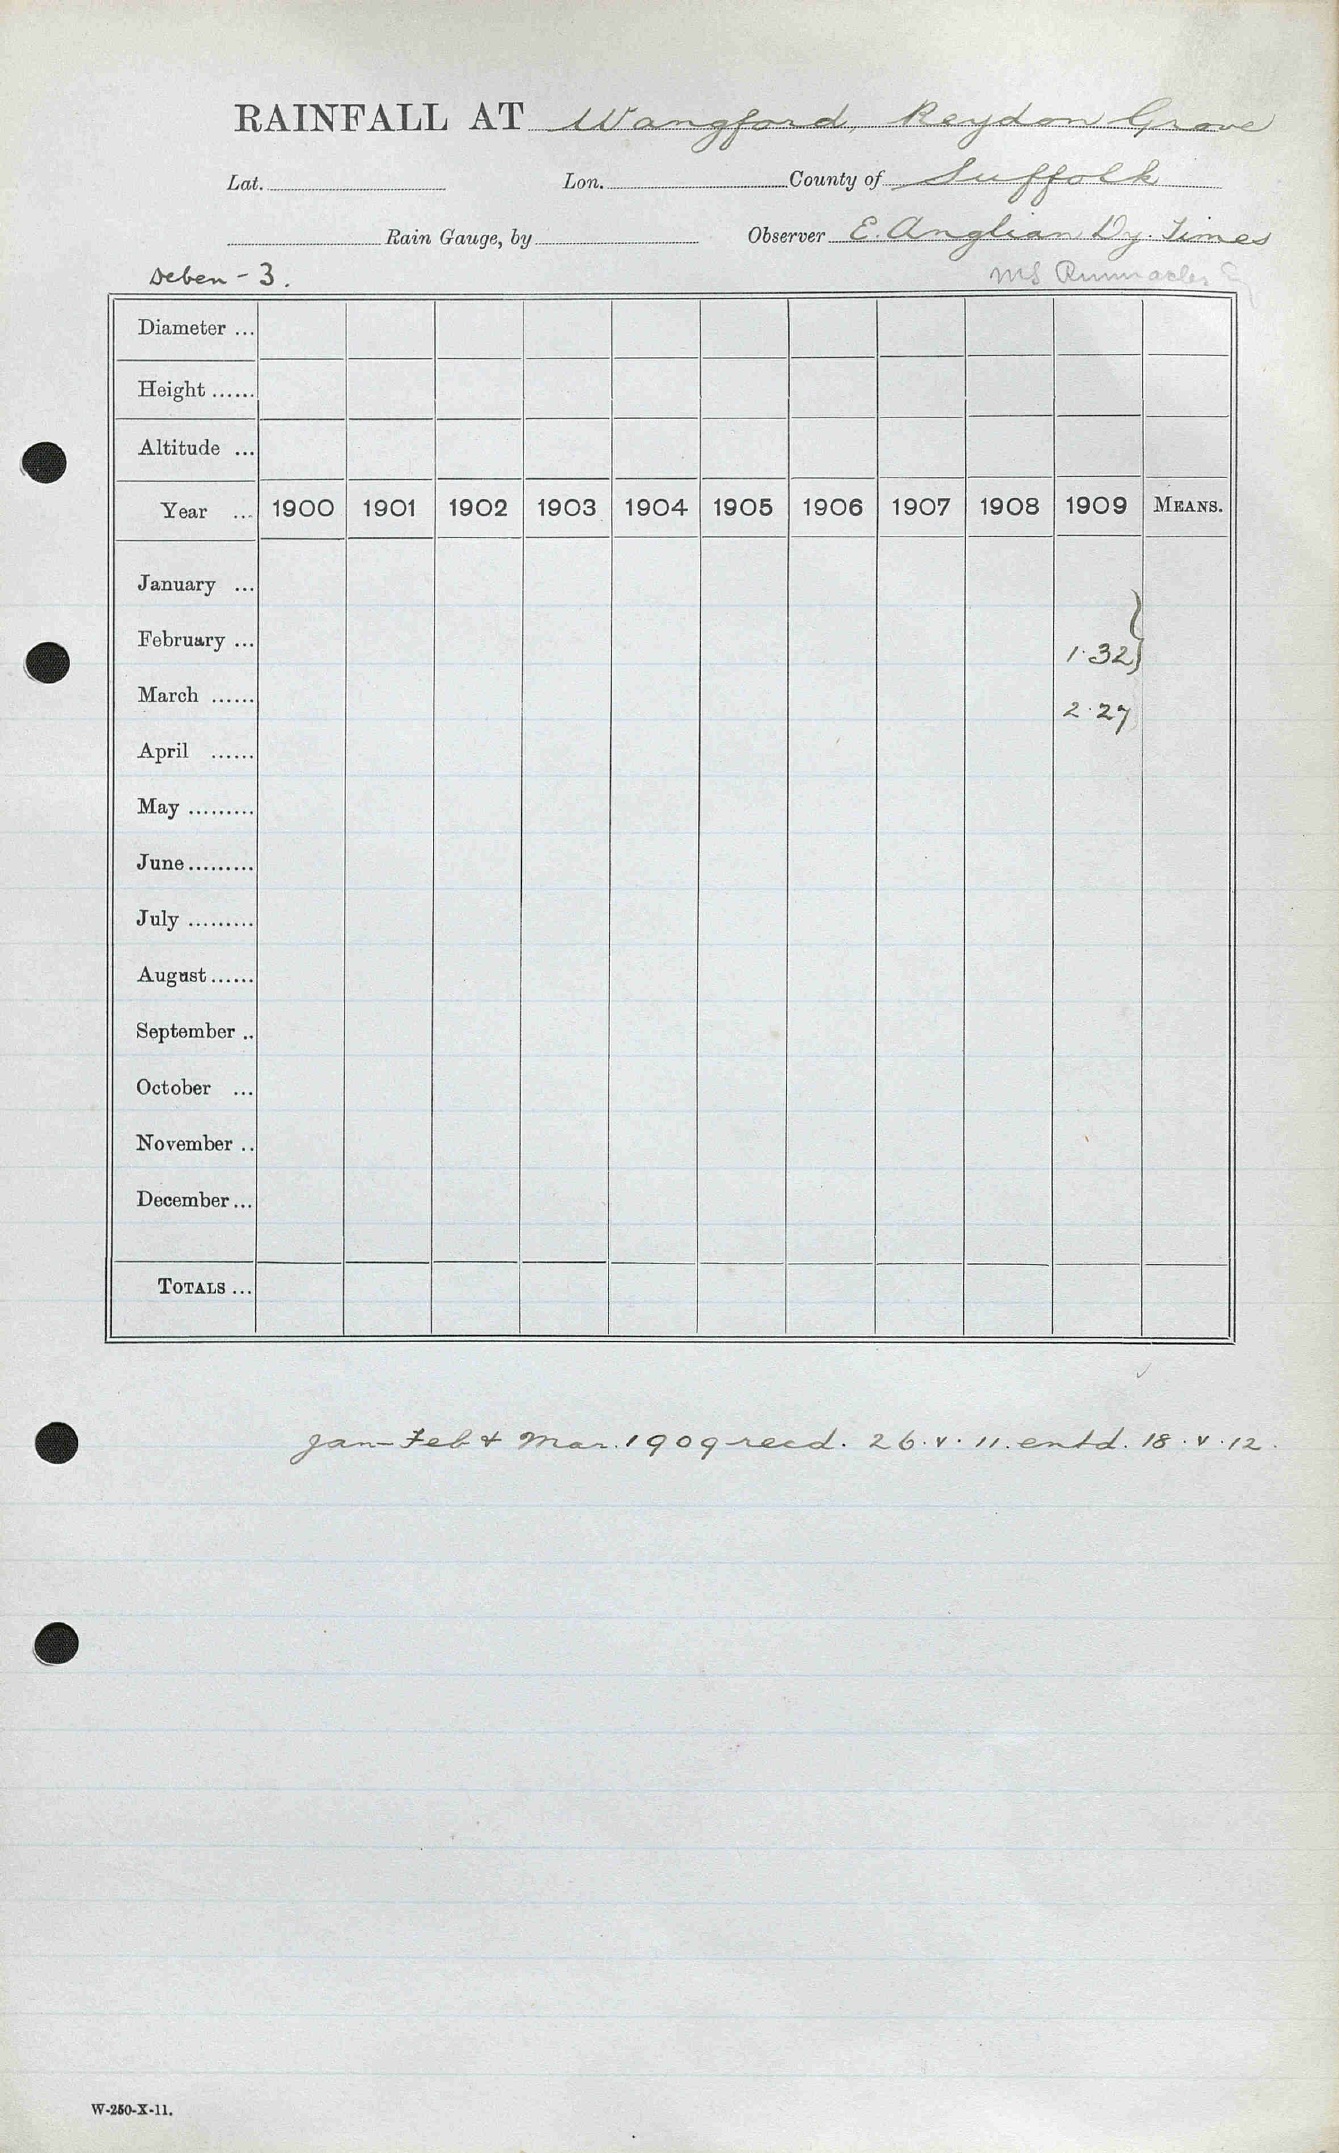 RAINFALL AT Wangford, Reydon Grove
Lat. Lon. County of Suffolk
Rain Gauge, by Observer E. Anglian Dy. Times
Deben - 3. MS
Diameter ...
Height ......
Altitude ...
Year ... 1900 1901 1902 1903 1904 1905 1906 1907 1908 1909 MEANS.
January ...
February ... 1.32
March ...... 2.27
April ......
May .........
June .........
July .........
August ......
September ..
October ...
November ..
December ...
TOTALS ...
Jan - Feb & Mar. 1909 recd. 26.v.11. entd. 18.v.12.
W-250-X-11.